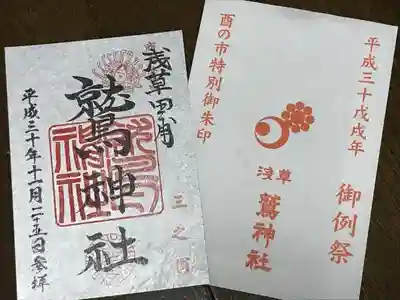 浅草田甫
鷲神社
三之酉
平成三十年十一月二十五日参拝
平成三十戊戌年
御例祭
酉の市特別御朱印
淺草
鷲神社